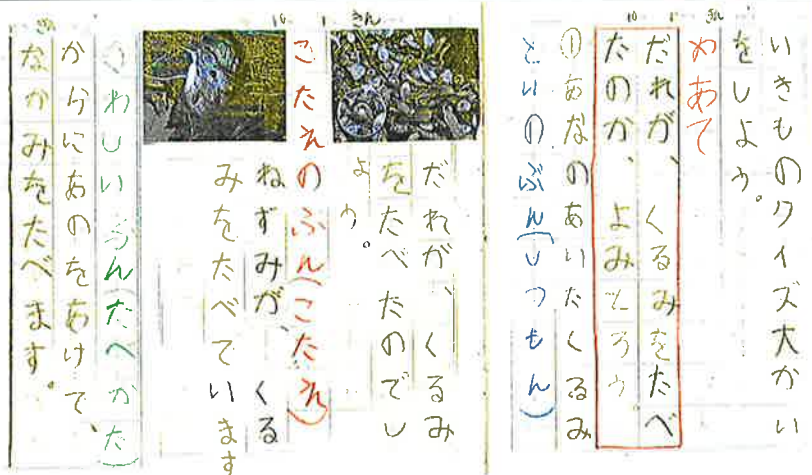 いきものクイズ大かい
をしよう。
めあて
だれが、くるみをたべ
たのか、よみとろう。
①あなのあいたくるみ
といのぶん(しつもん)
だれが、くるみ
をたべたのでし
ょう。
こたえのぶん(こたえ)
ねずみが、くる
みをたべてい
ます
くわしいぶん(たべかた)
からにあのをあけて、
なかみをたべます。